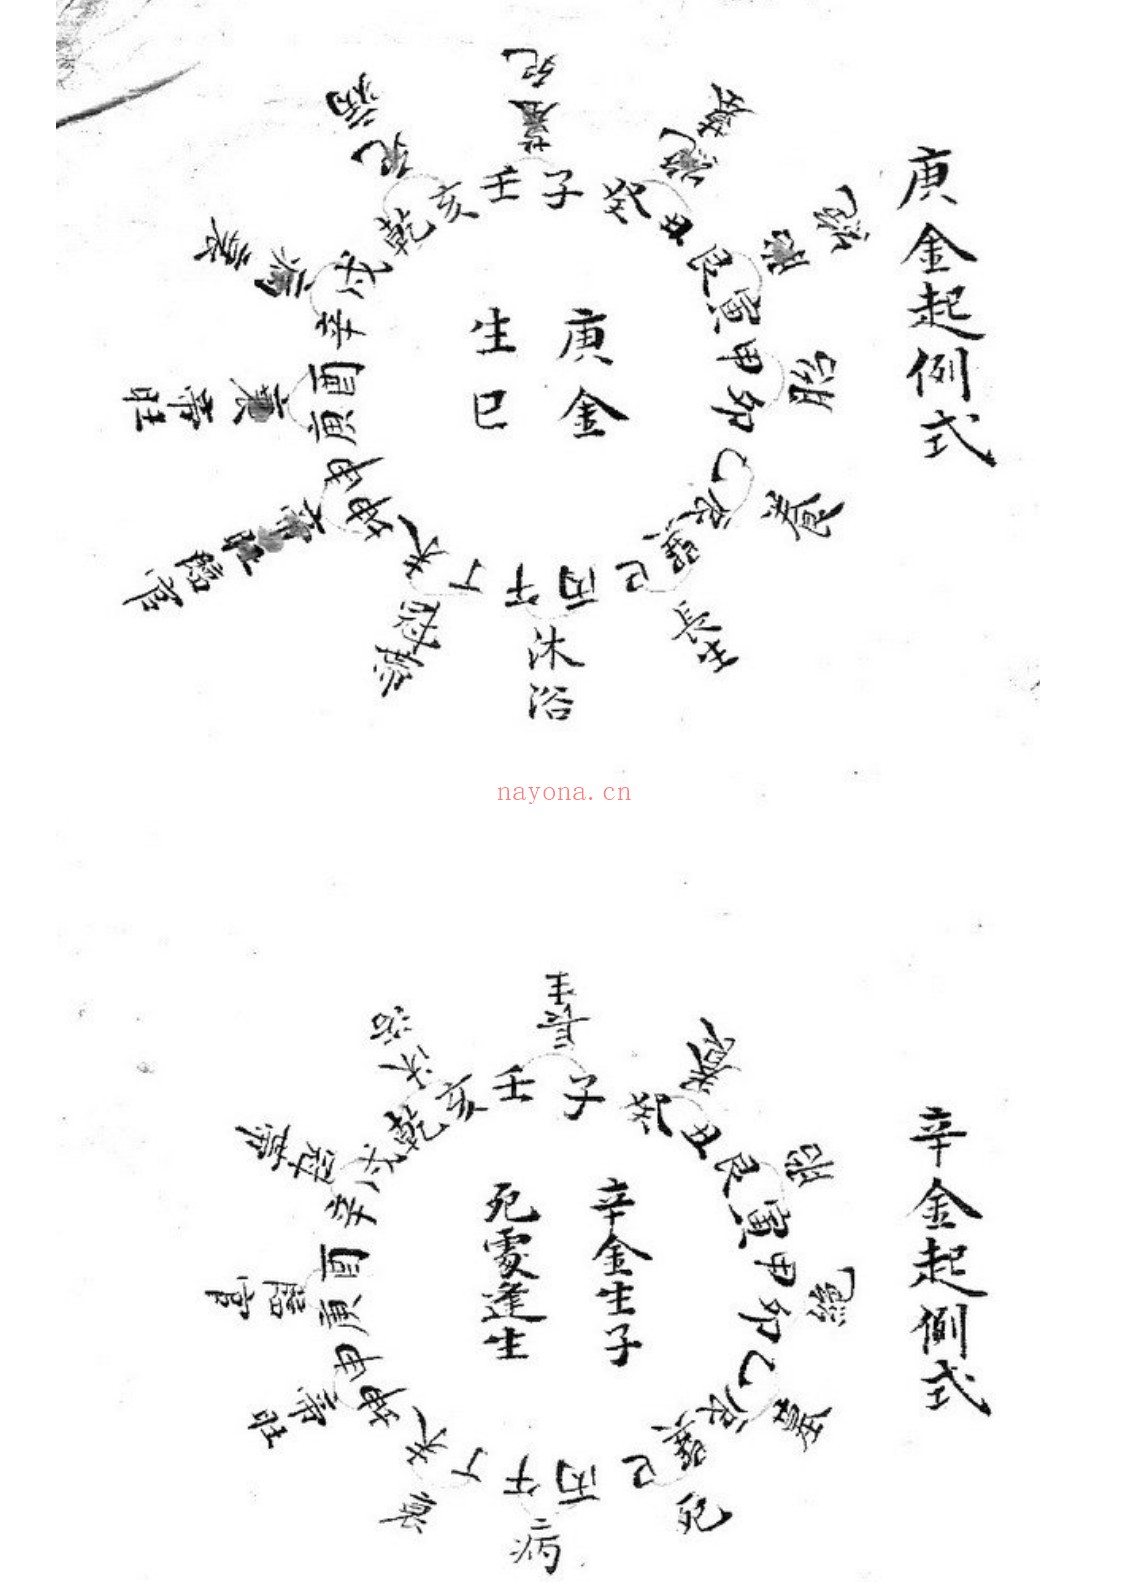 庚金起例式
庚金
生巳
壬子
癸丑
艮寅
甲卯
乙辰
巽巳
丙午
丁未
坤申
庚酉
辛戌
乾亥
死
墓
絕
胎
胎
養
長生
沐浴
冠帶
臨官
帝旺
帝旺
衰
衰
病
病
死
nayona.cn
辛金起例式
辛金生子
死處逢生
壬子
癸丑
艮寅
甲卯
乙辰
巽巳
丙午
丁未
坤申
庚酉
辛戌
乾亥
長生
養
胎
絕
墓
死
病
衰
帝旺
臨官
冠帶
沐浴